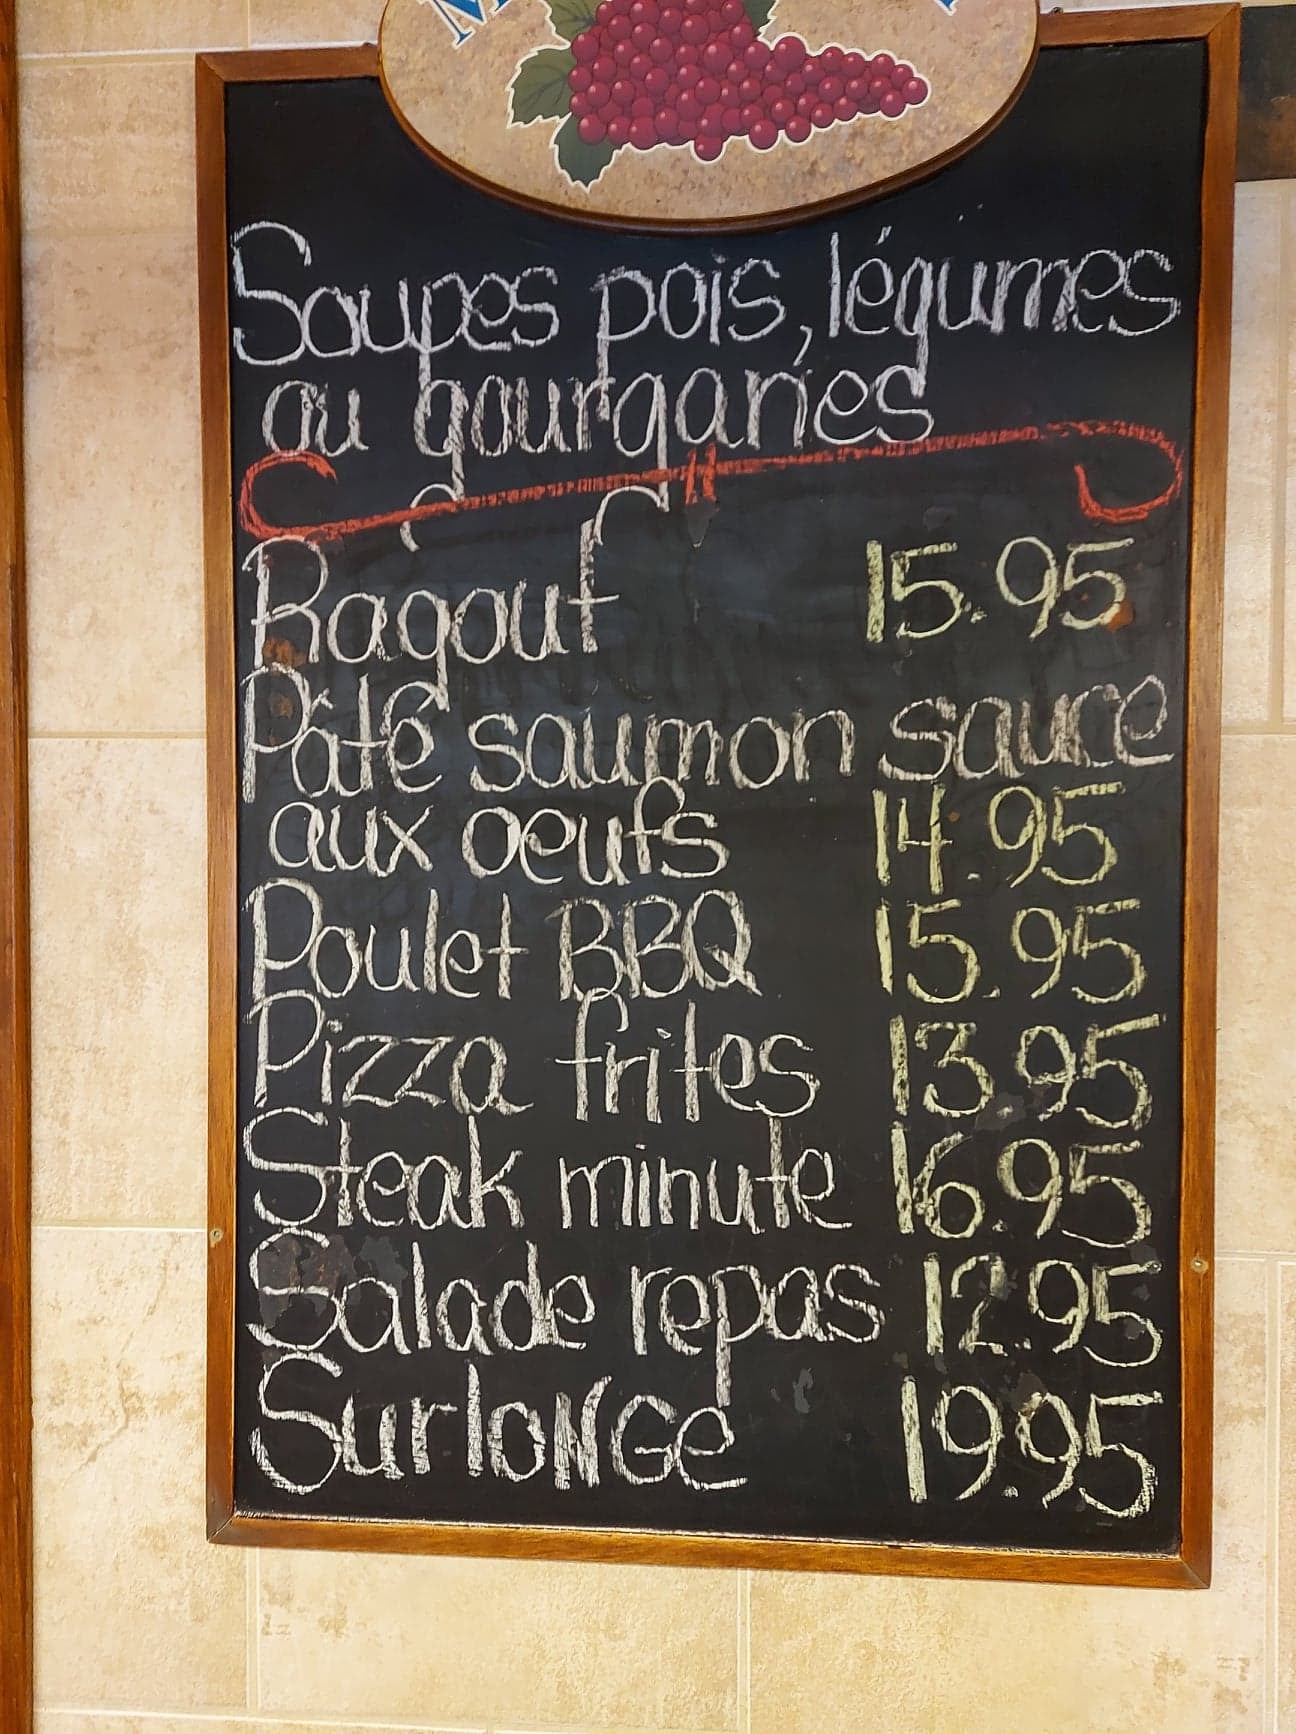 Soupes pois, légumes
ou gourganes
Ragout 15.95
Pâté saumon sauce
aux oeufs 14.95
Poulet BBQ 15.95
Pizza frites 13.95
Steak minute 16.95
Salade repas 12.95
SurloNGe 19.95